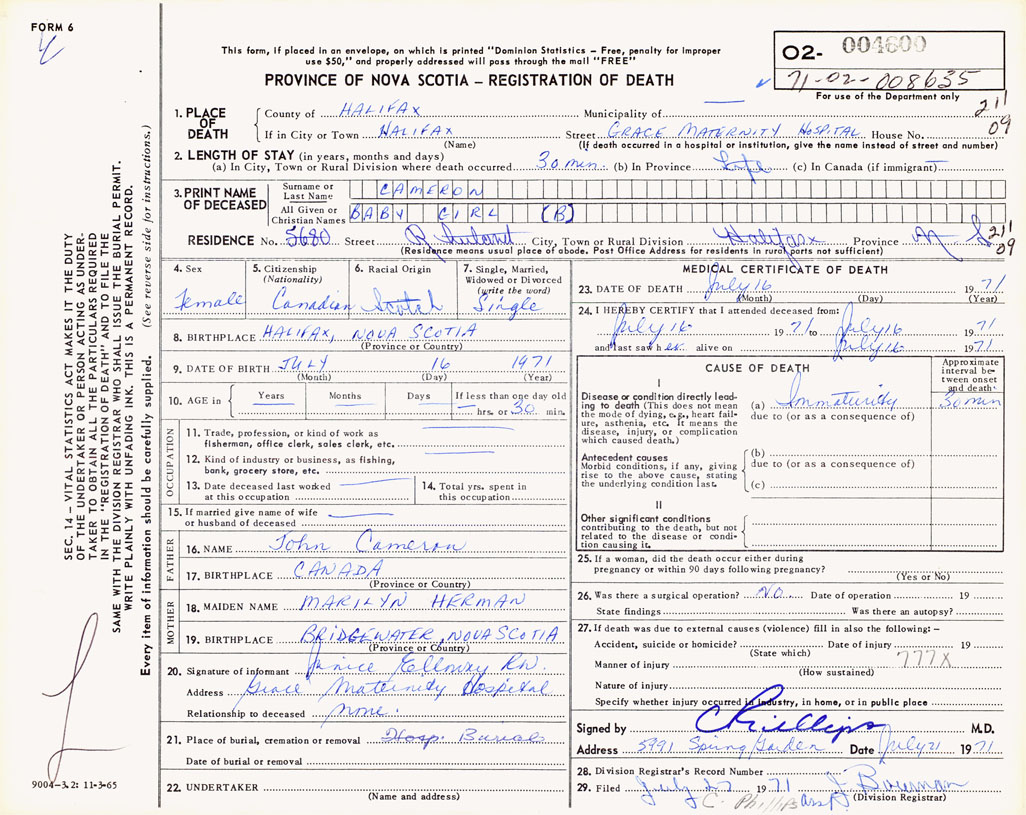 FORM 6
This form, if placed in an envelope, on which is printed "Dominion Statistics – Free, penalty for improper
use $50," and properly addressed will pass through the mail "FREE"
PROVINCE OF NOVA SCOTIA – REGISTRATION OF DEATH
O2- 004600
71-02-008635
For use of the Department only
211
09
1. PLACE OF DEATH
County of HALIFAX Municipality of
If in City or Town HALIFAX Street GRACE MATERNITY HOSPITAL House No.
(Name) (If death occurred in a hospital or institution, give the name instead of street and number)
2. LENGTH OF STAY (in years, months and days)
(a) In City, Town or Rural Division where death occurred 30 min. (b) In Province Life (c) In Canada (if immigrant)
3. PRINT NAME OF DECEASED
Surname or Last Name CAMERON
All Given or Christian Names BABY GIRL (B)
RESIDENCE No. 5680 Street City, Town or Rural Division Halifax Province N S
211
09
(Residence means usual place of abode. Post Office Address for residents in rural parts not sufficient)
4. Sex
Female
5. Citizenship (Nationality)
Canadian
6. Racial Origin
Scotch
7. Single, Married, Widowed or Divorced (write the word)
Single
8. BIRTHPLACE HALIFAX, NOVA SCOTIA
(Province or Country)
9. DATE OF BIRTH JULY 16 1971
(Month) (Day) (Year)
10. AGE in Years Months Days If less than one day old
hrs. or 30 min.
OCCUPATION
11. Trade, profession, or kind of work as
fisherman, office clerk, sales clerk, etc.
12. Kind of industry or business, as fishing,
bank, grocery store, etc.
13. Date deceased last worked
at this occupation
14. Total yrs. spent in
this occupation
15. If married give name of wife
or husband of deceased
FATHER
16. NAME John Cameron
17. BIRTHPLACE CANADA
(Province or Country)
MOTHER
18. MAIDEN NAME MARILYN HERMAN
19. BIRTHPLACE BRIDGEWATER, NOVA SCOTIA
(Province or Country)
20. Signature of informant Janice Elloway RN.
Address Grace Maternity Hospital
Relationship to deceased none.
21. Place of burial, cremation or removal Hosp. Burial
Date of burial or removal
22. UNDERTAKER
(Name and address)
MEDICAL CERTIFICATE OF DEATH
23. DATE OF DEATH July 16 1971
(Month) (Day) (Year)
24. I HEREBY CERTIFY that I attended deceased from:
July 16 1971 to July 16 1971
and last saw her alive on July 16 1971
CAUSE OF DEATH
Approximate interval between onset and death
I
Disease or condition directly leading to death (This does not mean
the mode of dying, e.g., heart failure, asthenia, etc. It means the
disease, injury, or complication
which caused death.)
(a) Immaturity 30 min
due to (or as a consequence of)
Antecedent causes
Morbid conditions, if any, giving
rise to the above cause, stating
the underlying condition last.
(b)
due to (or as a consequence of)
(c)
II
Other significant conditions
contributing to the death, but not
related to the disease or condition causing it.
25. If a woman, did the death occur either during
pregnancy or within 90 days following pregnancy?
(Yes or No)
26. Was there a surgical operation? NO. Date of operation 19
State findings Was there an autopsy?
27. If death was due to external causes (violence) fill in also the following: –
Accident, suicide or homicide? Date of injury 19
(State which) 777X
Manner of injury
(How sustained)
Nature of injury
Specify whether injury occurred in industry, in home, or in public place
Signed by C Phillips M.D.
Address 5991 Spring Garden Date July 21 1971
28. Division Registrar's Record Number
29. Filed July 27 1971 J Bowman
(Division Registrar)
C. Phillips
SEC. 14 – VITAL STATISTICS ACT MAKES IT THE DUTY
OF THE UNDERTAKER OR PERSON ACTING AS UNDERTAKER TO OBTAIN ALL THE PARTICULARS REQUIRED
IN THE "REGISTRATION OF DEATH" AND TO FILE THE
SAME WITH THE DIVISION REGISTRAR WHO SHALL ISSUE THE BURIAL PERMIT.
WRITE PLAINLY WITH UNFADING INK. THIS IS A PERMANENT RECORD.
Every item of information should be carefully supplied. (See reverse side for instructions.)
9004-3.2: 11-3-65